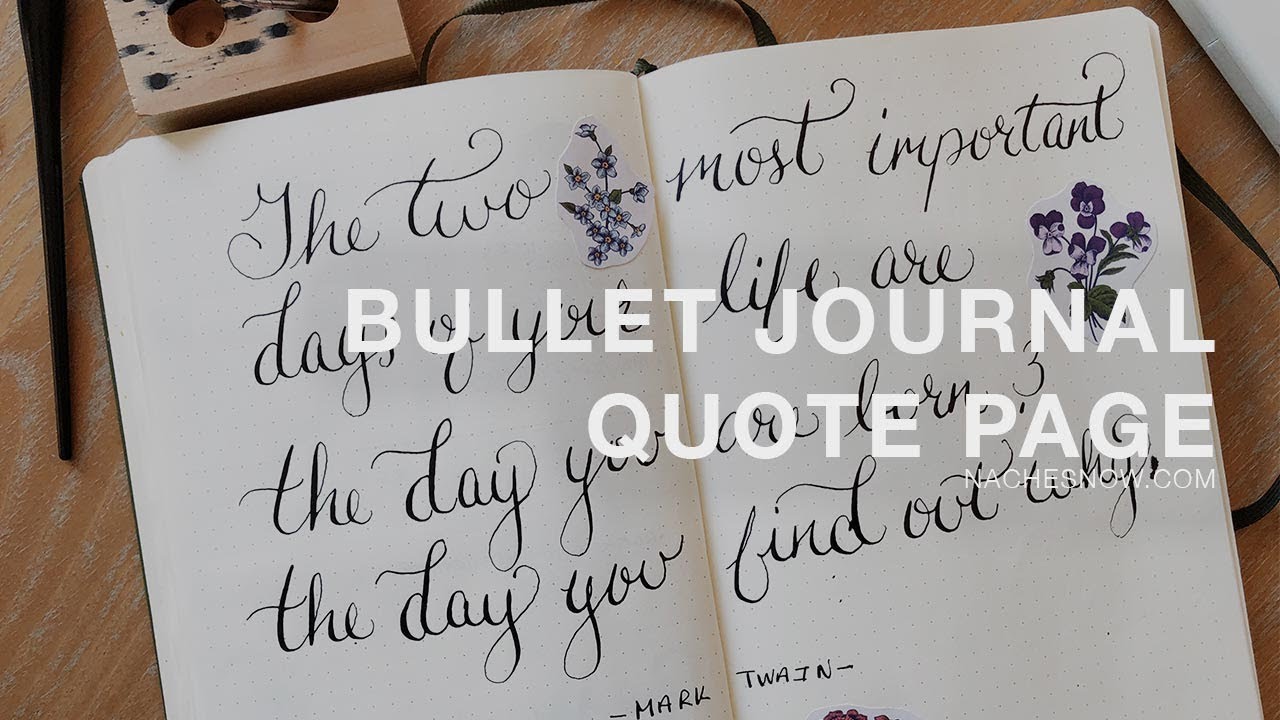 The two most important
days of your life are
the day you are born &
the day you find out why.
-MARK TWAIN-
BULLET JOURNAL
QUOTE PAGE
NACHESNOW.COM